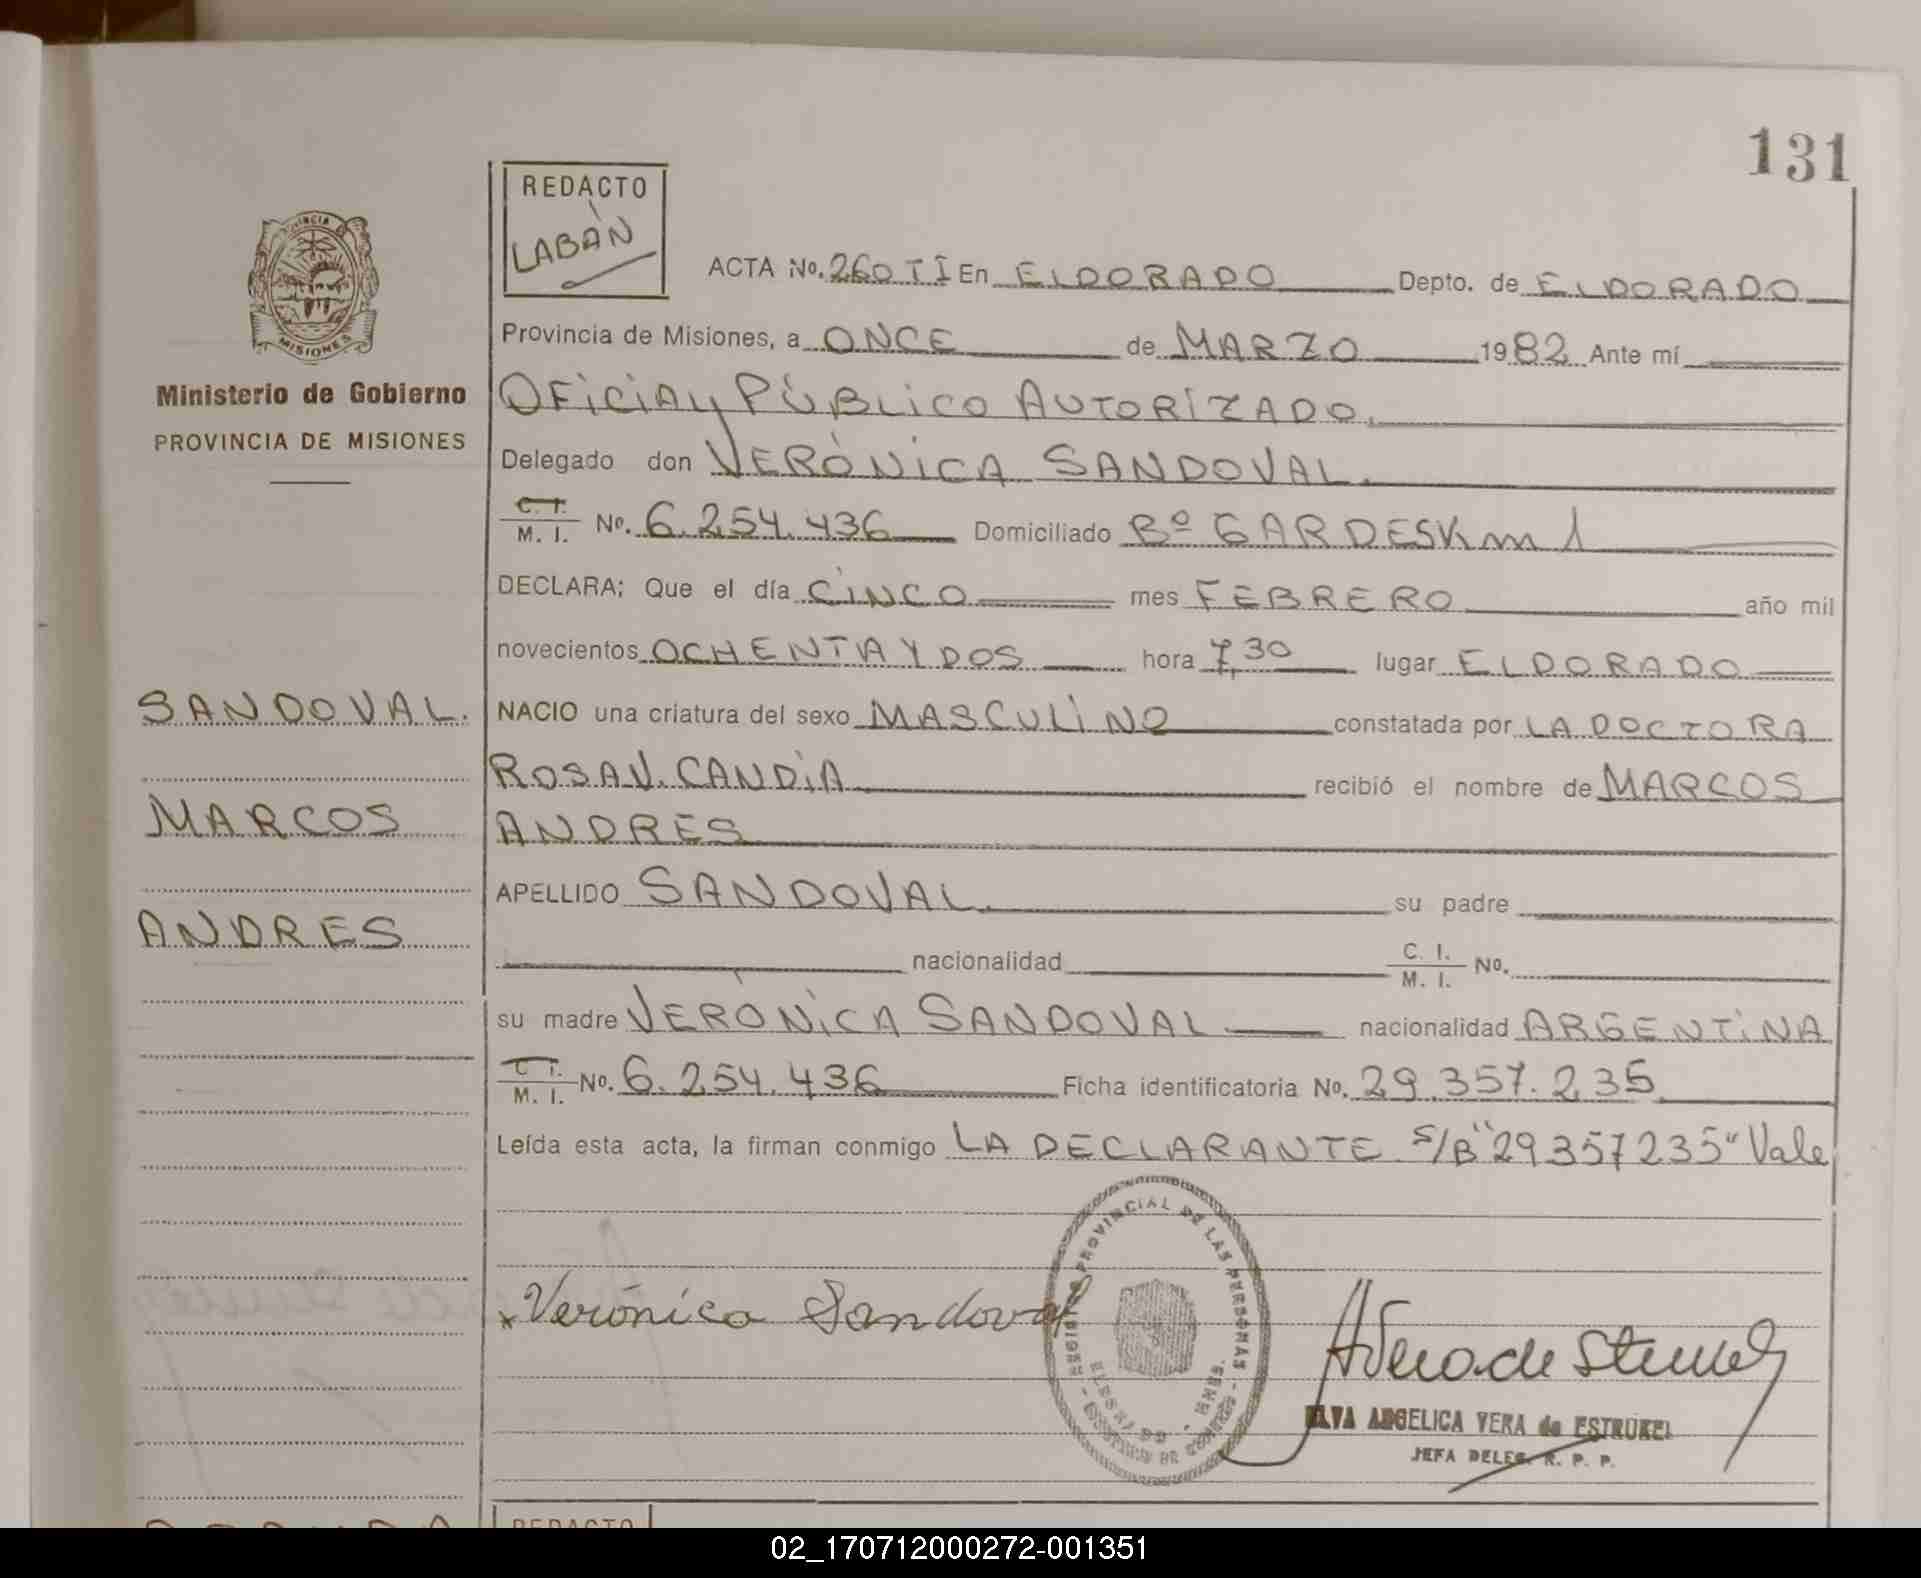 131
REDACTO
LABÁN
ACTA No. 260 TI En ELDORADO Depto. de ELDORADO
Provincia de Misiones, a ONCE de MARZO 1982 Ante mí
OFICIAL PÚBLICO AUTORIZADO.
Delegado don VERÓNICA SANDOVAL.
C. I. M. I. No. 6.254.436 Domiciliado Bº GARDES Km 1
DECLARA; Que el día CINCO mes FEBRERO año mil
novecientos OCHENTA Y DOS hora 7,30 lugar ELDORADO
NACIO una criatura del sexo MASCULINO constatada por LA DOCTORA
ROSA V. CANDIA recibió el nombre de MARCOS
ANDRES
APELLIDO SANDOVAL. su padre
nacionalidad C. I. M. I. No.
su madre VERÓNICA SANDOVAL nacionalidad ARGENTINA
C. I. M. I. No. 6.254.436 Ficha identificatoria No. 29.357.235
Leída esta acta, la firman conmigo LA DECLARANTE S/B "29357235" Vale
x Verónica Sandoval
REGISTRO PROVINCIAL DE LAS PERSONAS
VERA de ESTRUKEL
JEFA DELEG. R. P. P.
PROVINCIA DE
MISIONES
Ministerio de Gobierno
PROVINCIA DE MISIONES
SANDOVAL.
MARCOS
ANDRES
REDACTO
02_170712000272-001351